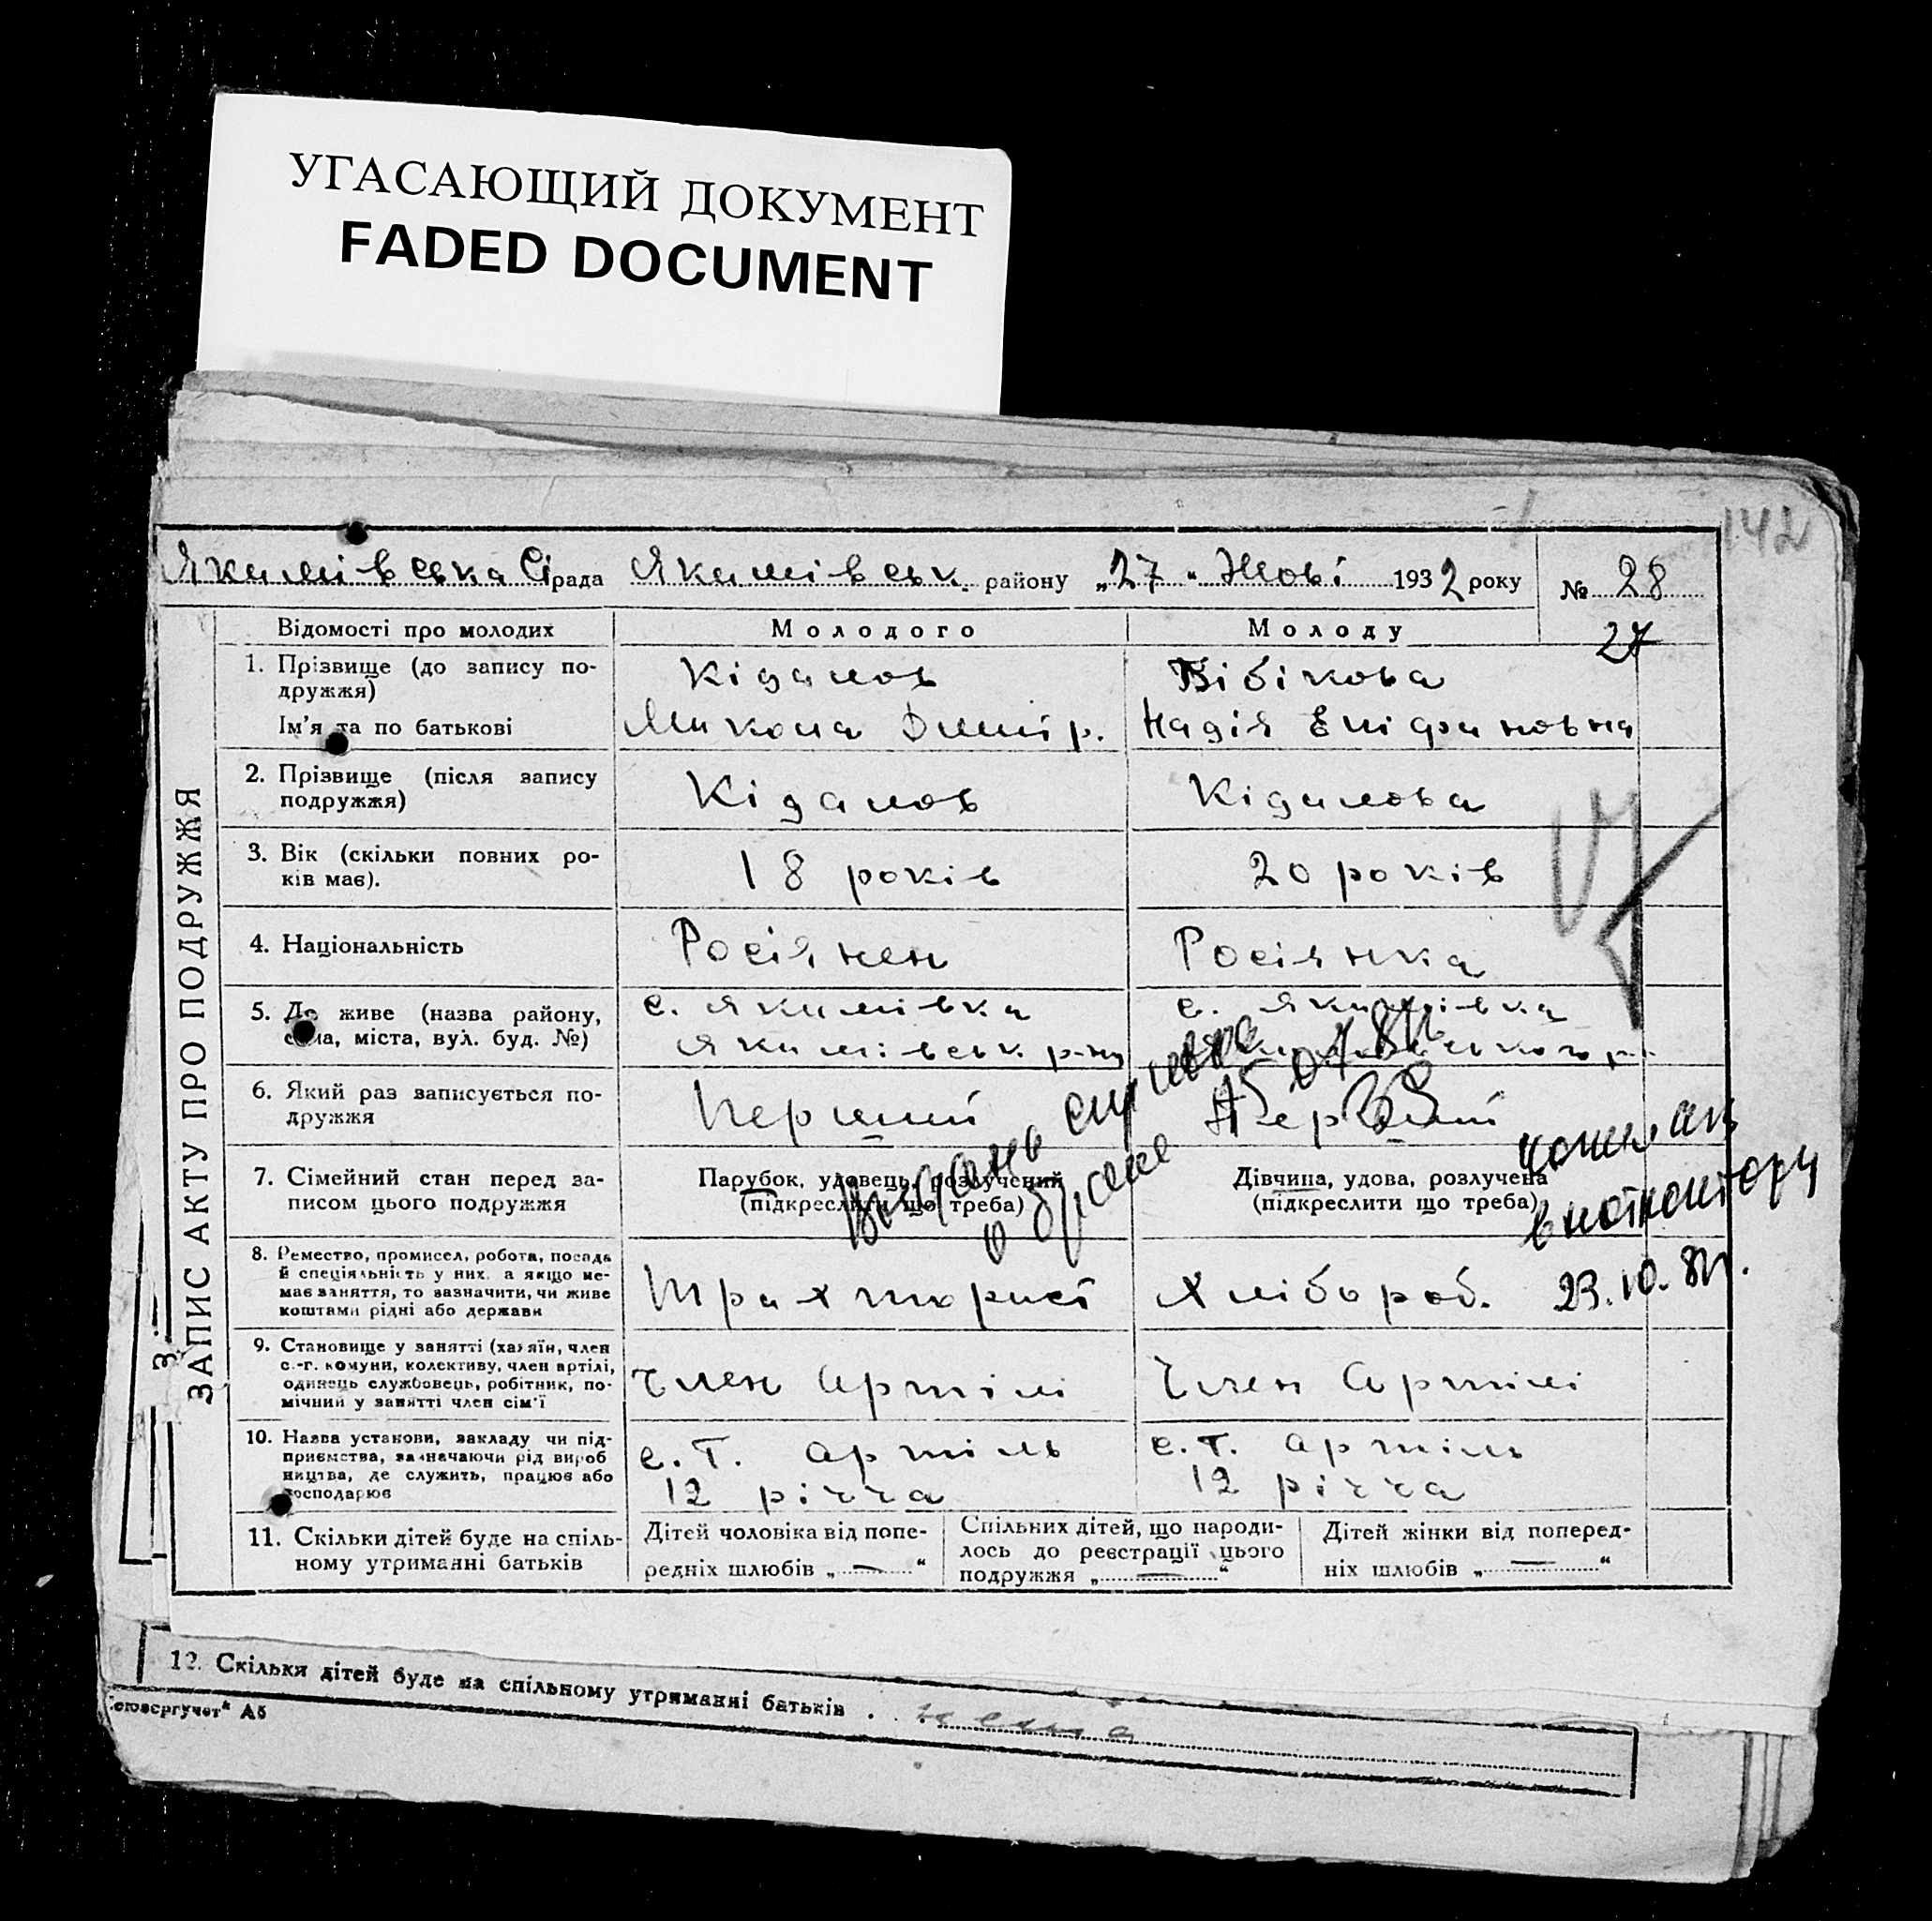 УГАСАЮЩИЙ ДОКУМЕНТ
FADED DOCUMENT
142
Якимівська Сірада Якимівськ. району „27“ Жові 1932 року № 28
27
ЗАПИС АКТУ ПРО ПОДРУЖЖЯ
Відомості про молодих Молодого Молоду
1. Прізвище (до запису по-
дружжя)
Кідалов Бібікова
Ім'я та по батькові Микола Дмитр. Надія Епіфановна
2. Прізвище (після запису
подружжя)
Кідалов Кідалова
3. Вік (скільки повних ро-
ків має).
18 років 20 років
4. Національність Росіянен Росіянка
5. Де живе (назва району,
села, міста, вул. буд. №)
с. Якимівка с. Якимівка
Якимівськ. р-ну
6. Який раз записується по-
дружжя
Перший Перший
7. Сімейний стан перед за-
писом цього подружжя
Парубок, удовець, розлучений
(підкреслити що треба)
Дівчина, удова, розлучена
(підкреслити що треба)
8. Ремество, промисел, робота, посада
й спеціяльність у них, а якщо не-
має заняття, то зазначити, чи живе
коштами рідні або держави
Трахторист Хлібороб.
23.10.81г.
9. Становище у занятті (хазяїн, член
с.-г. комуни, колективу, член артілі,
одинець службовець, робітник, по-
мічний у занятті член сім'ї
Член Артілі Член Артілі
10. Назва установи, закладу чи під-
приємства, зазначаючи рід вироб
ництва, де служить, працює або
господарює
с.г. артіль с.г. артіль
12 річча 12 річча
11. Скільки дітей буде на спіль-
ному утриманні батьків
Дітей чоловіка від попе-
редніх шлюбів „—“
Спільних дітей, що народи-
лось до реєстрації цього
подружжя „—“
Дітей жінки від поперед-
ніх шлюбів „—“
12. Скільки дітей буде на спільному утриманні батьків . . нема